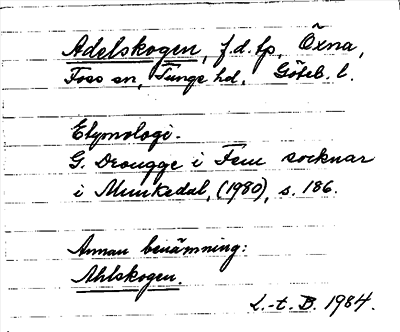 Adelskogen, f.d. tp, Öxna,
Foss sn, Tunge hd, Göteb. l.
Etymologi.
G. Drougge i Fem socknar
i Munkedal, (1980), s. 186.
Annan benämning:
Ahlskogen.
L.-t. B. 1984.